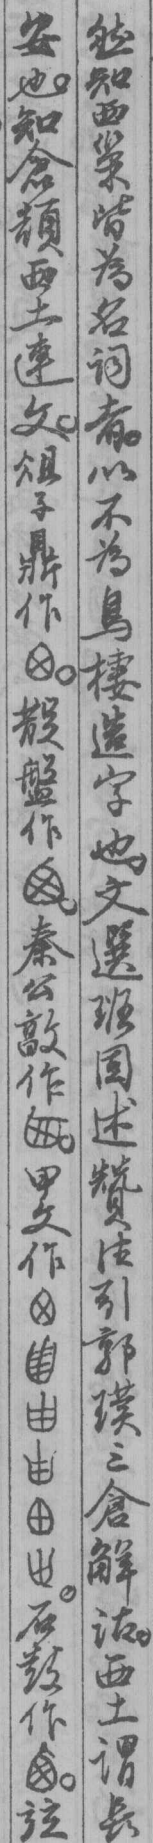 然知西巢皆為名詞者。以不為鳥棲造字也。文選班固述贊注引郭璞三倉解詁。西土謂長
安也。知倉頡西土連文。俎子鼎作。散盤作。秦公敦作。甲文作。石鼓作。說